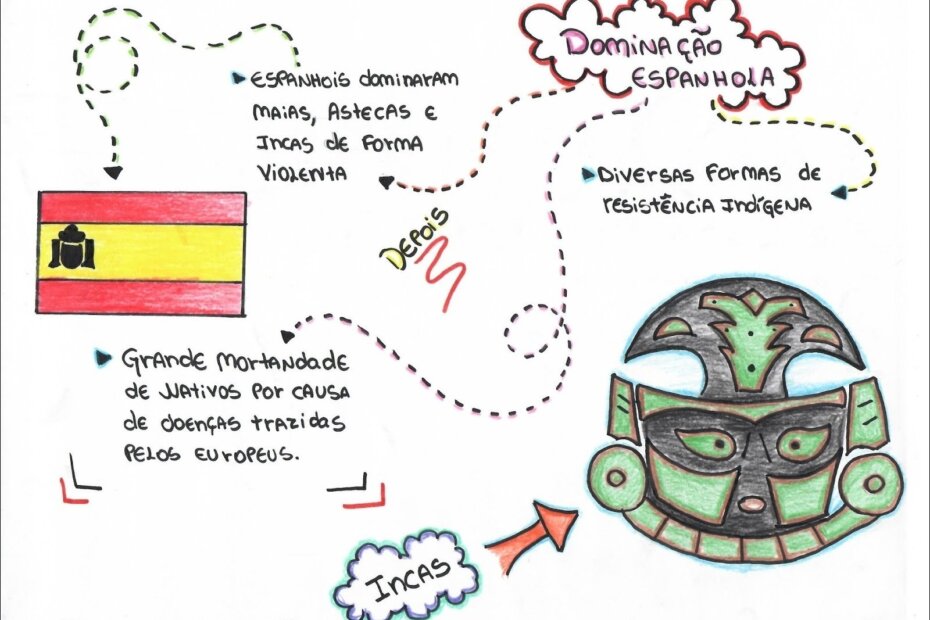 Dominação
Espanhola
Espanhois dominaram
maias, Astecas e
Incas de forma
violenta
Diversas formas de
resistência indígena
Depois
Grande mortandade
de nativos por causa
de doenças trazidas
pelos europeus.
Incas